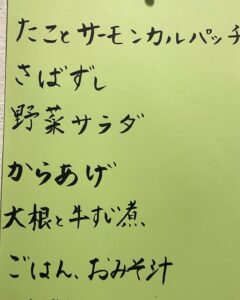 たことサーモンカルパッチ
さばずし
野菜サラダ
からあげ
大根と牛すじ煮
ごはん、おみそ汁